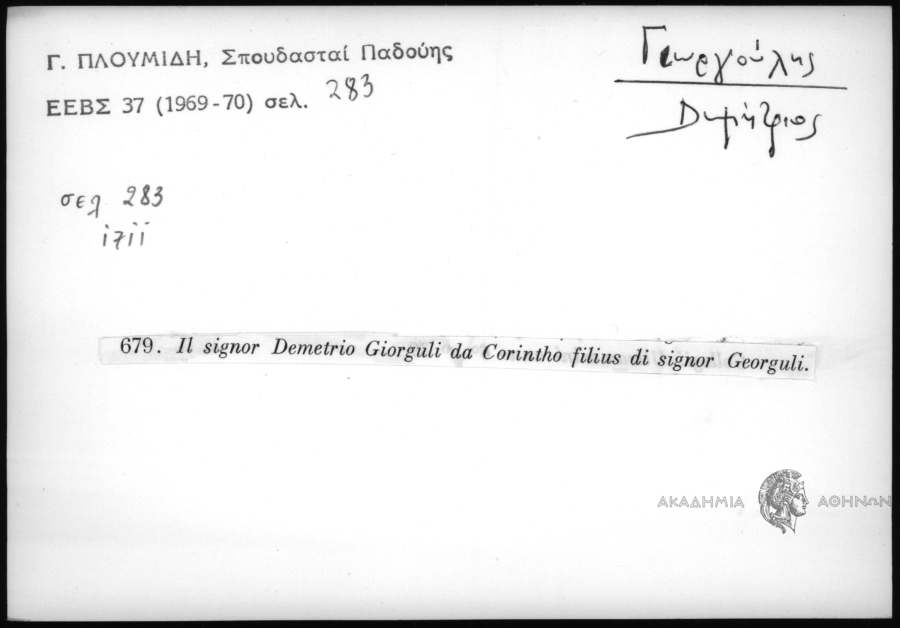 Γ. ΠΛΟΥΜΙΔΗ, Σπουδασταί Παδούης
ΕΕΒΣ 37 (1969-70) σελ. 283
Γεωργούλης
Δημήτριος
σελ 283
1711
679. Il signor Demetrio Giorguli da Corintho filius di signor Georguli.
ΑΚΑΔΗΜΙΑ ΑΘΗΝΩΝ